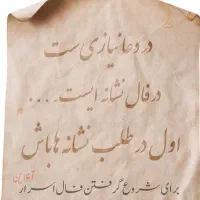 در دعا نیازی ست
در فال نشانه ایست....
اول در طلب نشانه ها باش
آنلاین
برای شروع گرفتن فال اسرار